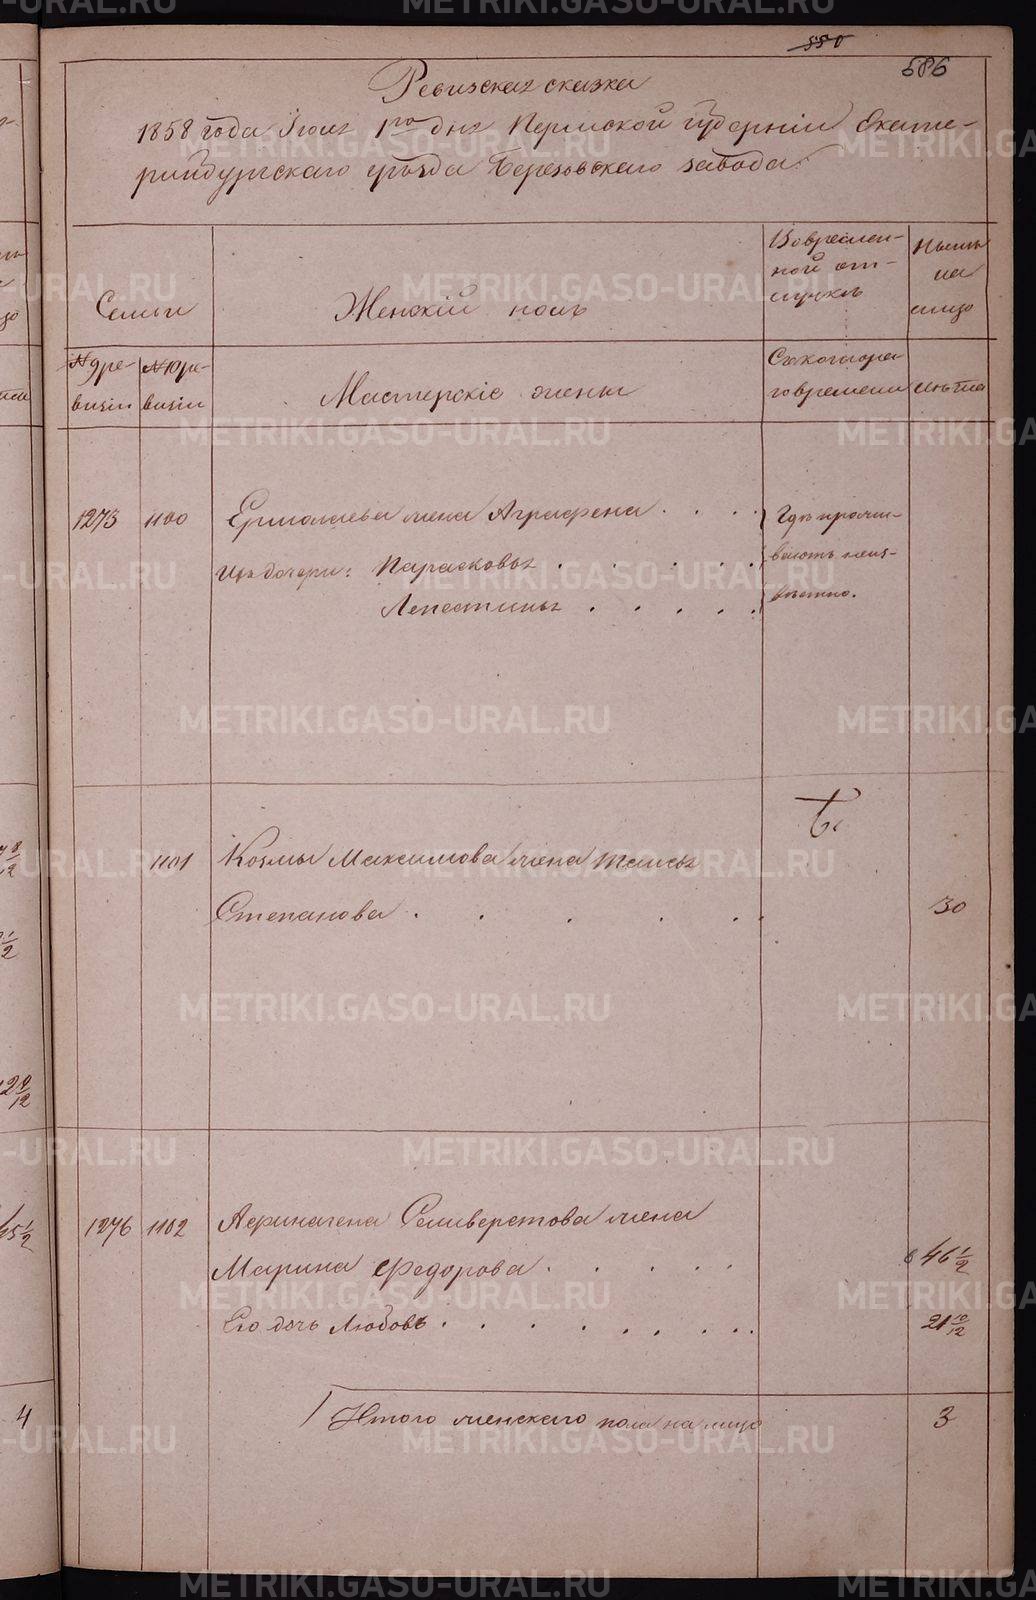 550
586
Ревизская сказка
1858 года Iюня 1го дня Пермской губернiи Екате-
ринбургскаго уѣзда Березовскаго завода.
Семьи
Женскiй полъ
Во времен-
ной от-
лучкѣ
Нынѣ
на
лицо
№ 9 ре-
визiи
№ 10 ре-
визiи
Мастерскiе жены
Съ котора
го времени
Лѣта
1273 1100 Ермолаева жена Аграфена
Ихъ дочери: Парасковья
Лепестинья
Гдѣ прожи-
ваютъ неиз-
вѣстно.
1101 Козмы Максимова жена Таисья
Степанова 30
1276 1102 Афиногена Селиверстова жена
Марина Федорова 46 1/2
Его дочь Любовь 21 10/12
Итого женскаго пола на лицо 3
4
METRIKI.GASO-URAL.RU